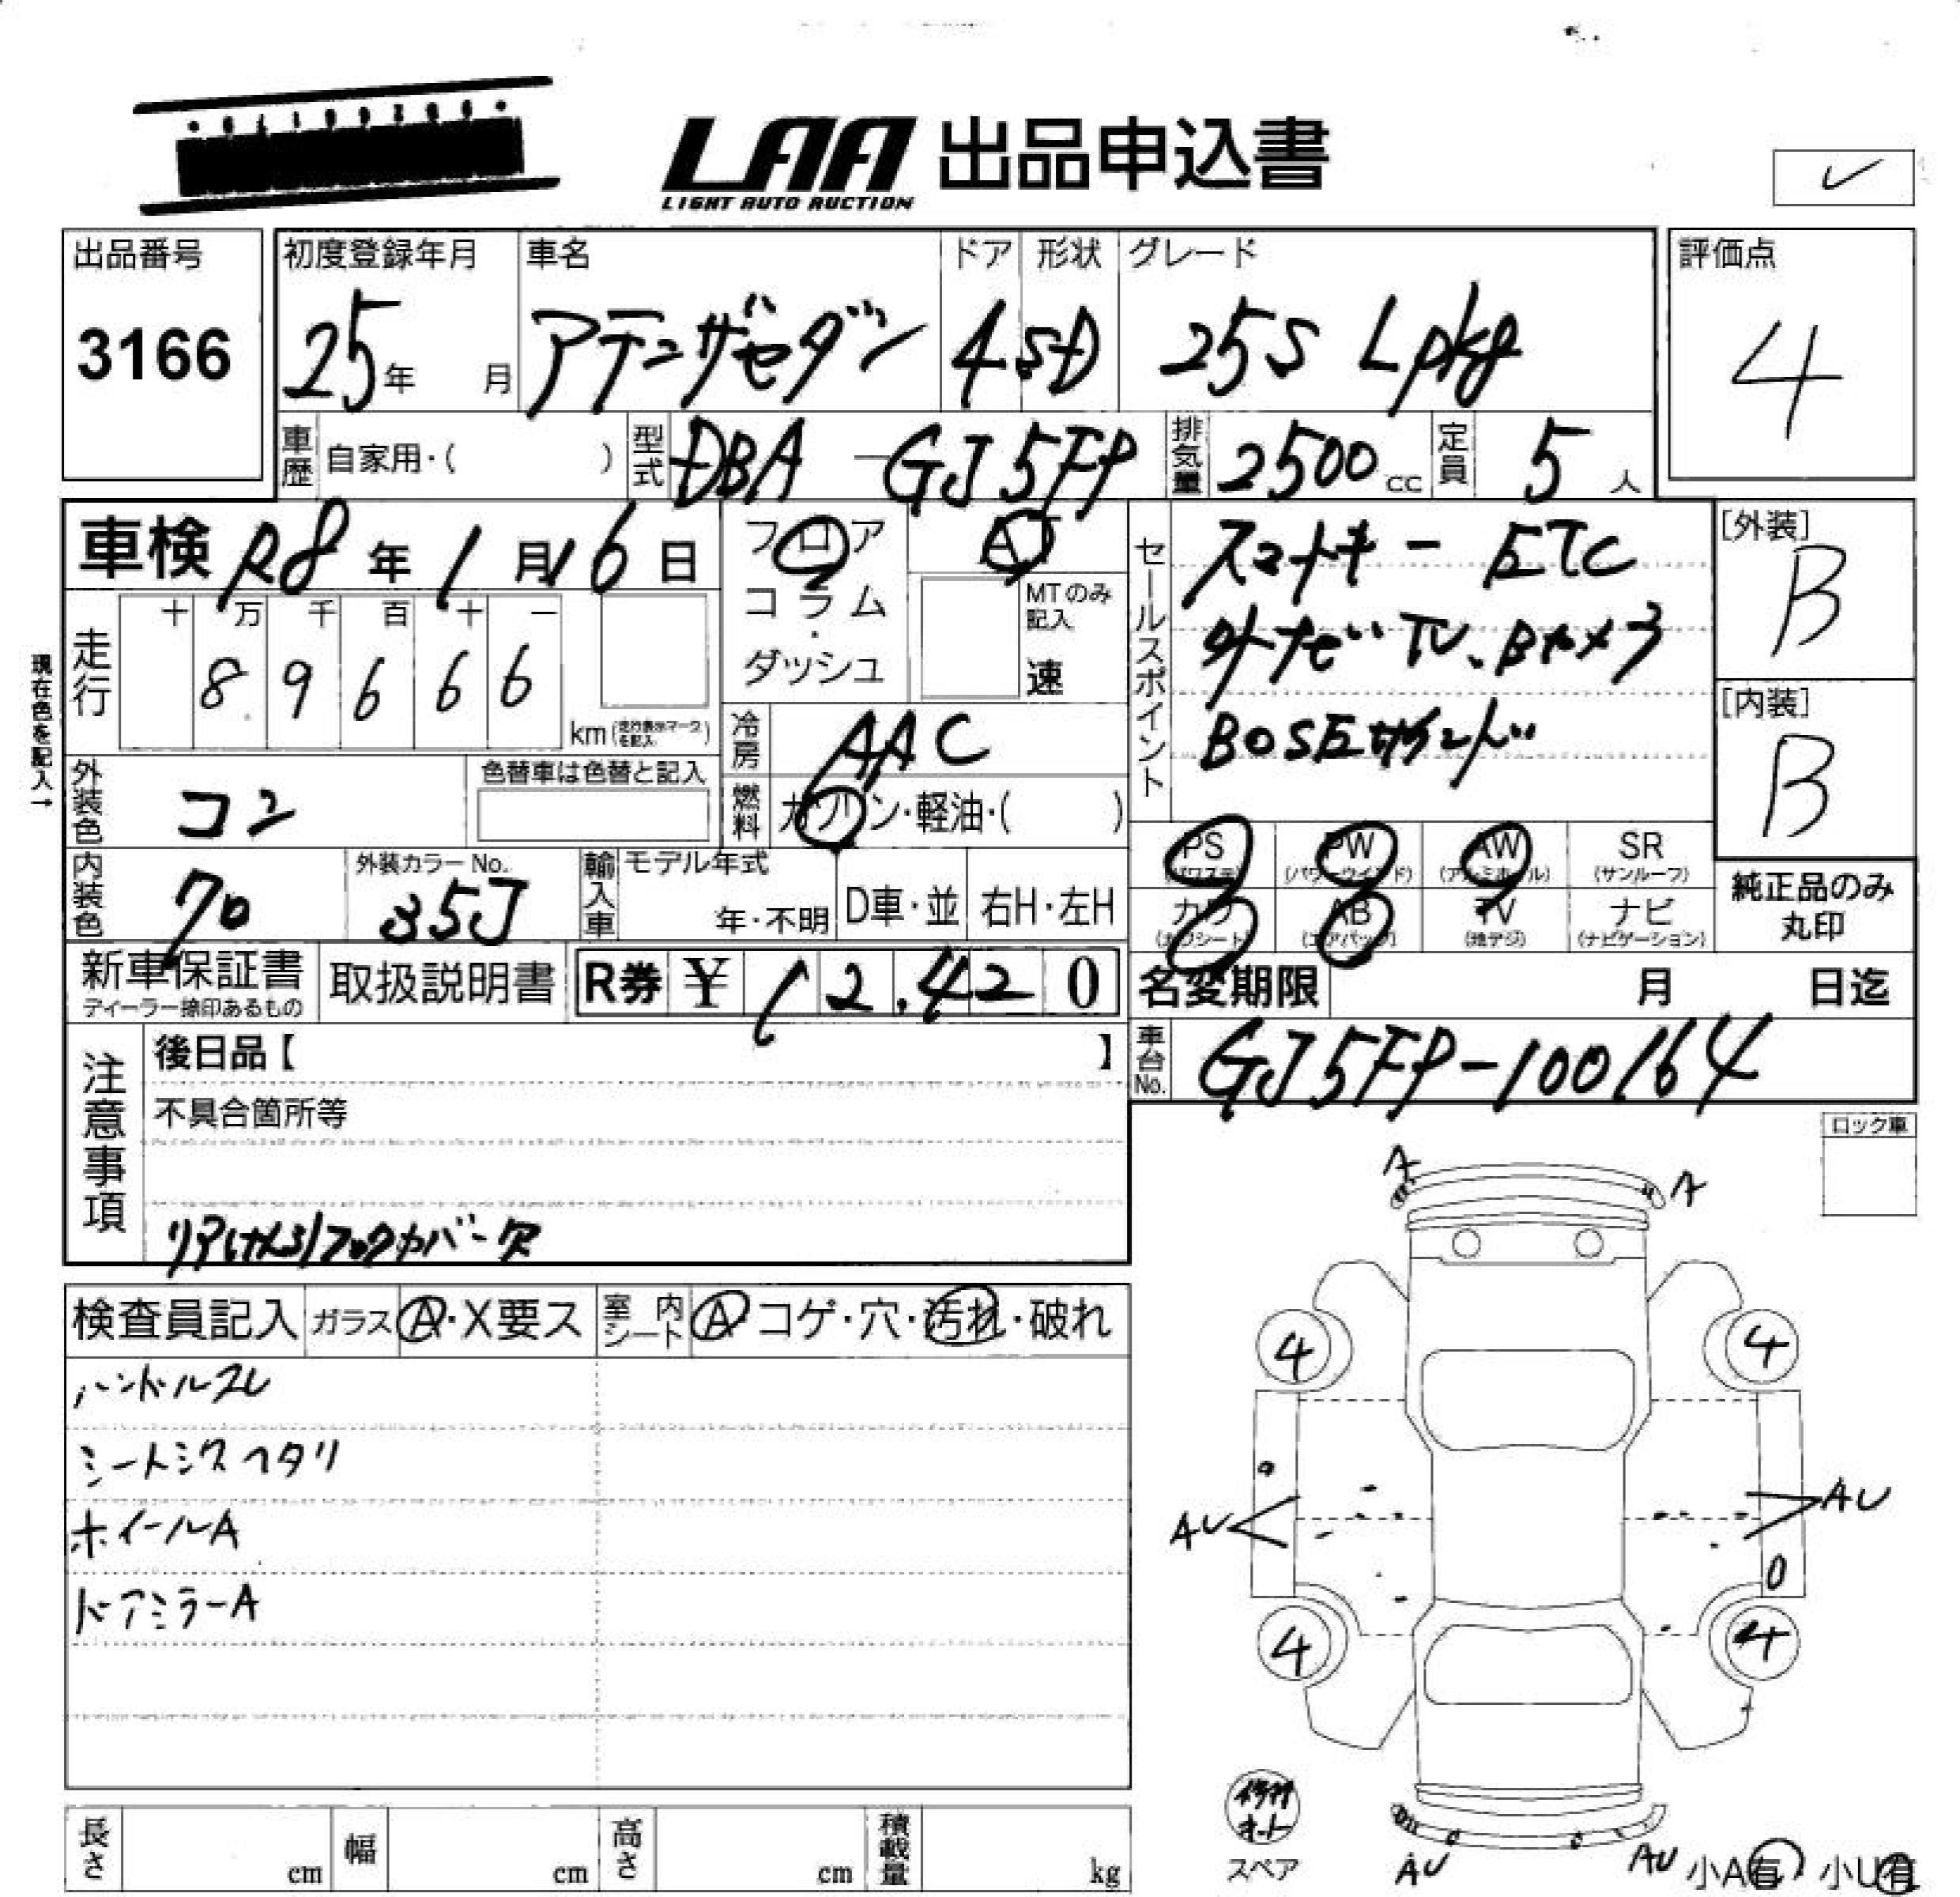 LAA 出品申込書
LIGHT AUTO AUCTION
出品番号
3166
初度登録年月
25年 月
車名
アテンザセダン
ドア
4
形状
SD
グレード
25S Lpkg
評価点
4
車歴 自家用・( )
型式 DBA-GJ5FP
排気量 2500cc
定員 5人
車検 R8年1月16日
フロア
コラム
・
ダッシュ
AT
MTのみ記入
速
セールスポイント
スマートキー ETC
外ナビ TV、Bカメラ
BOSEサウンド
[外装]
B
[内装]
B
現在色を記入→
走行
十 万 千 百 十 一
8 9 6 6 6
km(走行表示マークを記入)
冷房 AAC
燃料 ガソリン・軽油・( )
外装色 コン
色替車は色替と記入
内装色 クロ
外装カラーNo.
35J
輸入車
モデル年式
年・不明
D車・並
右H・左H
PS(パワステ)
PW(パワーウインド)
AW(アルミホイール)
SR(サンルーフ)
カワ(カワシート)
AB(エアバック)
TV(地デジ)
ナビ(ナビゲーション)
純正品のみ丸印
新車保証書
ディーラー捺印あるもの
取扱説明書
R券 ¥ 12,420
名変期限 月 日迄
車台No. GJ5FP-100164
注意事項
後日品【 】
不具合箇所等
リアけん引フックカバー欠
ロック車
検査員記入
ガラス A・X要ス
室内シート A コゲ・穴・汚れ・破れ
ハンドルスレ
シートシワ ヘタリ
ホイールA
ドアミラーA
A
A
4
4
AU
AU
4
4
スペア
AU
AU
小A有 小U有
長さ cm
幅 cm
高さ cm
積載量 kg